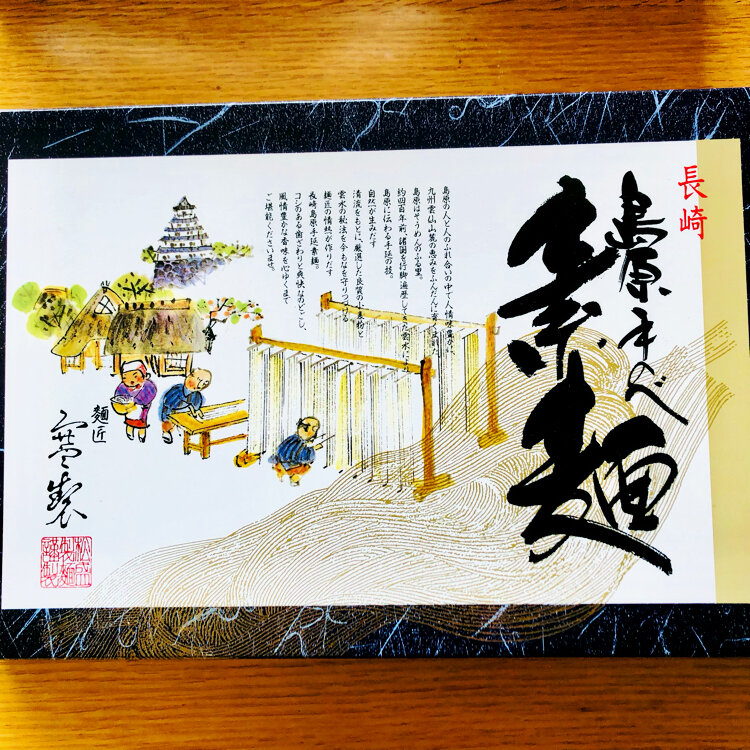 長崎
島原手のべ
素麺
島原の人と人のふれ合いの中で人情味豊かに、
九州雲仙山麓の恵みをふんだんに寄せられた
島原はそうめんのふる里。
約四百年前、諸国を行脚遍歴してきた雲水により
島原に伝わる手延の技。
自然が生みだす
清流をもとに、厳選した良質の小麦粉と
雲水の秘法を今もなを守りつづける
麺匠の情熱が作りだす
長崎島原手延素麺。
コシのある歯ざわりと爽快なのどごし、
風情豊かな香味を心ゆくまで
ご堪能くださいませ。
麺匠
製
松盛
製麺
謹製